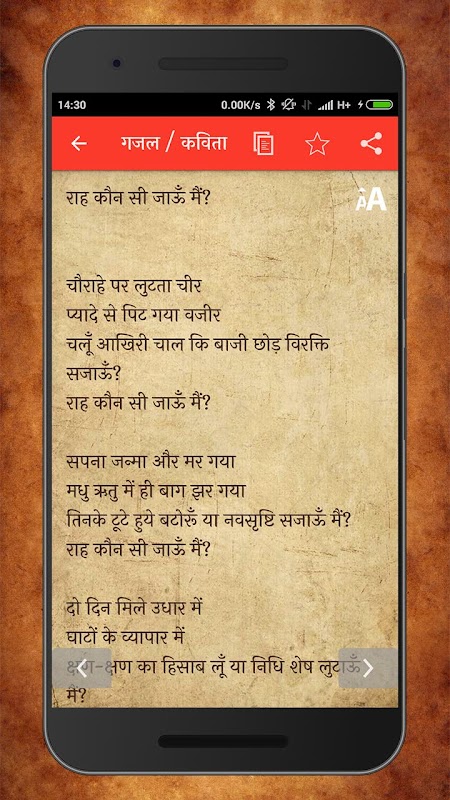 14:30 0.00K/s H+
गजल / कविता
राह कौन सी जाऊँ मैं?
AA
चौराहे पर लुटता चीर
प्यादे से पिट गया वजीर
चलूँ आखिरी चाल कि बाजी छोड़ विरक्ति
सजाऊँ?
राह कौन सी जाऊँ मैं?
सपना जन्मा और मर गया
मधु ऋतु में ही बाग झर गया
तिनके टूटे हुये बटोरूँ या नवसृष्टि सजाऊँ मैं?
राह कौन सी जाऊँ मैं?
दो दिन मिले उधार में
घाटों के व्यापार में
क्षण-क्षण का हिसाब लूँ या निधि शेष लुटाऊँ
में?